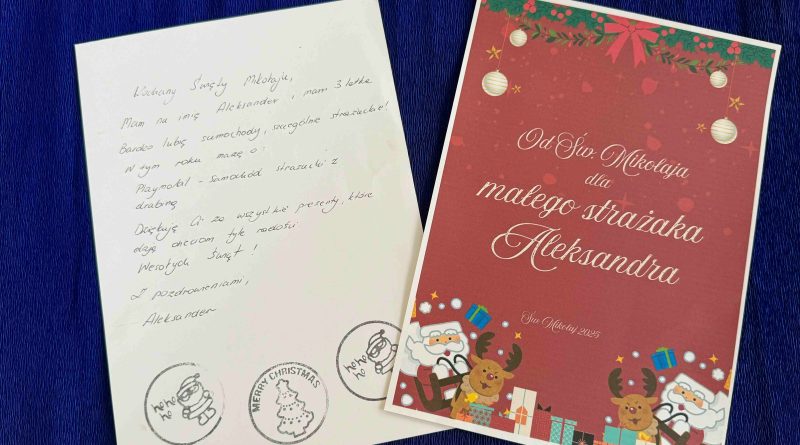 Kochany Święty Mikołaju,
Mam na imię Aleksander i mam 3 latka
Bardzo lubię samochody, szczególnie strażackie!
W tym roku marzę o:
Playmobil - samochód strażacki z
drabiną
Dziękuję Ci za wszystkie prezenty, które
dają dzieciom tyle radości.
Wesołych Świąt!
Z pozdrowieniami,
Aleksander
HO HO HO
MERRY CHRISTMAS
HO HO HO
Od Św. Mikołaja
dla
małego strażaka
Aleksandra
Św. Mikołaj 2025